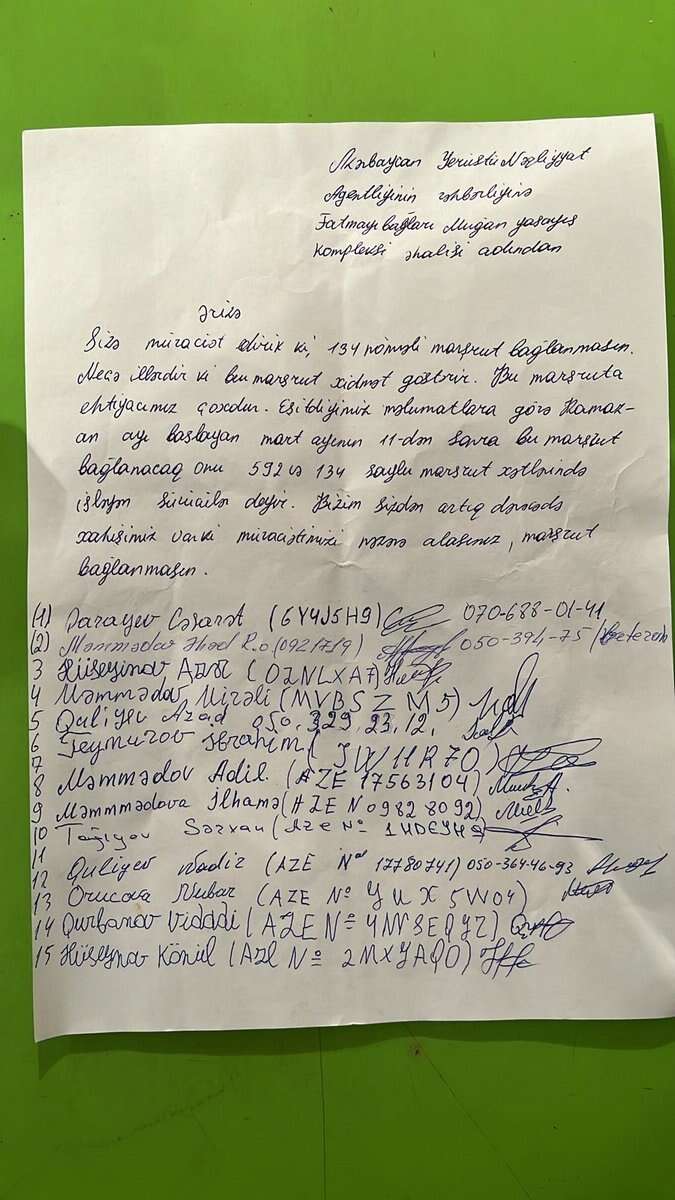 Azərbaycan Yerüstü Nəqliyyat
Agentliyinin rəhbərliyinə
Fatmayı bağları Muğan yaşayış
kompleksi əhalisi adından
Ərizə
Sizə müraciət edirik ki, 134 nömrəli marşrut bağlanmasın.
Neçə illərdir ki bu marşrut xidmət göstərir. Bu marşruta
ehtiyacımız çoxdur. Eşitdiyimiz məlumatlara görə Ramaz-
an ayı başlayan mart ayının 11-dən sonra bu marşrut
bağlanacaq onu 592 və 134 saylı marşrut xətlərində
işləyən sürücülər deyir. Bizim sizdən artıq dərəcədə
xahişimiz var ki müraciətimizi nəzərə alasınız, marşrut
bağlanmasın.
(1) Qarayev Cəsarət (6Y4J5H9) 070-688-01-41
(2) Məmmədov Əhəd R.o (092719) 050-394-75
3 Hüseyinov (OZNLXA7)
4 Məmmədov Mirəli (MVBSZM5)
5 Quliyev Azad 050.329.23.12.
6 Teymurov İbrahim (JW11R70)
7
8 Məmmədov Adil (AZE 17563104)
9 Məmmmədova İlhamə (AZE N 09828092)
10 Tağıyev Sərxan (Aze №
11
12 Quliyev Nadir (AZE № 17780741) 050-364-46-93
13 Orucova Nubar (AZE № YUX5W04)
14 Qurbanov Vidadi (AZE №
15 Hüseynov Könül (AZE № 2MXYAQO)